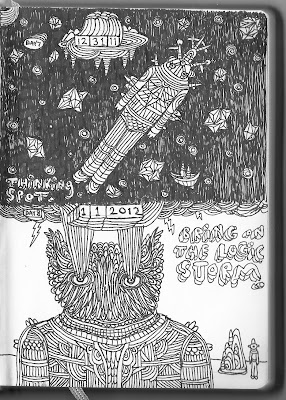 DAY?
12 31 11
THINKING
SPOT.
DATE
1 1 2012
BRING ON
THE LOGIC
STORM